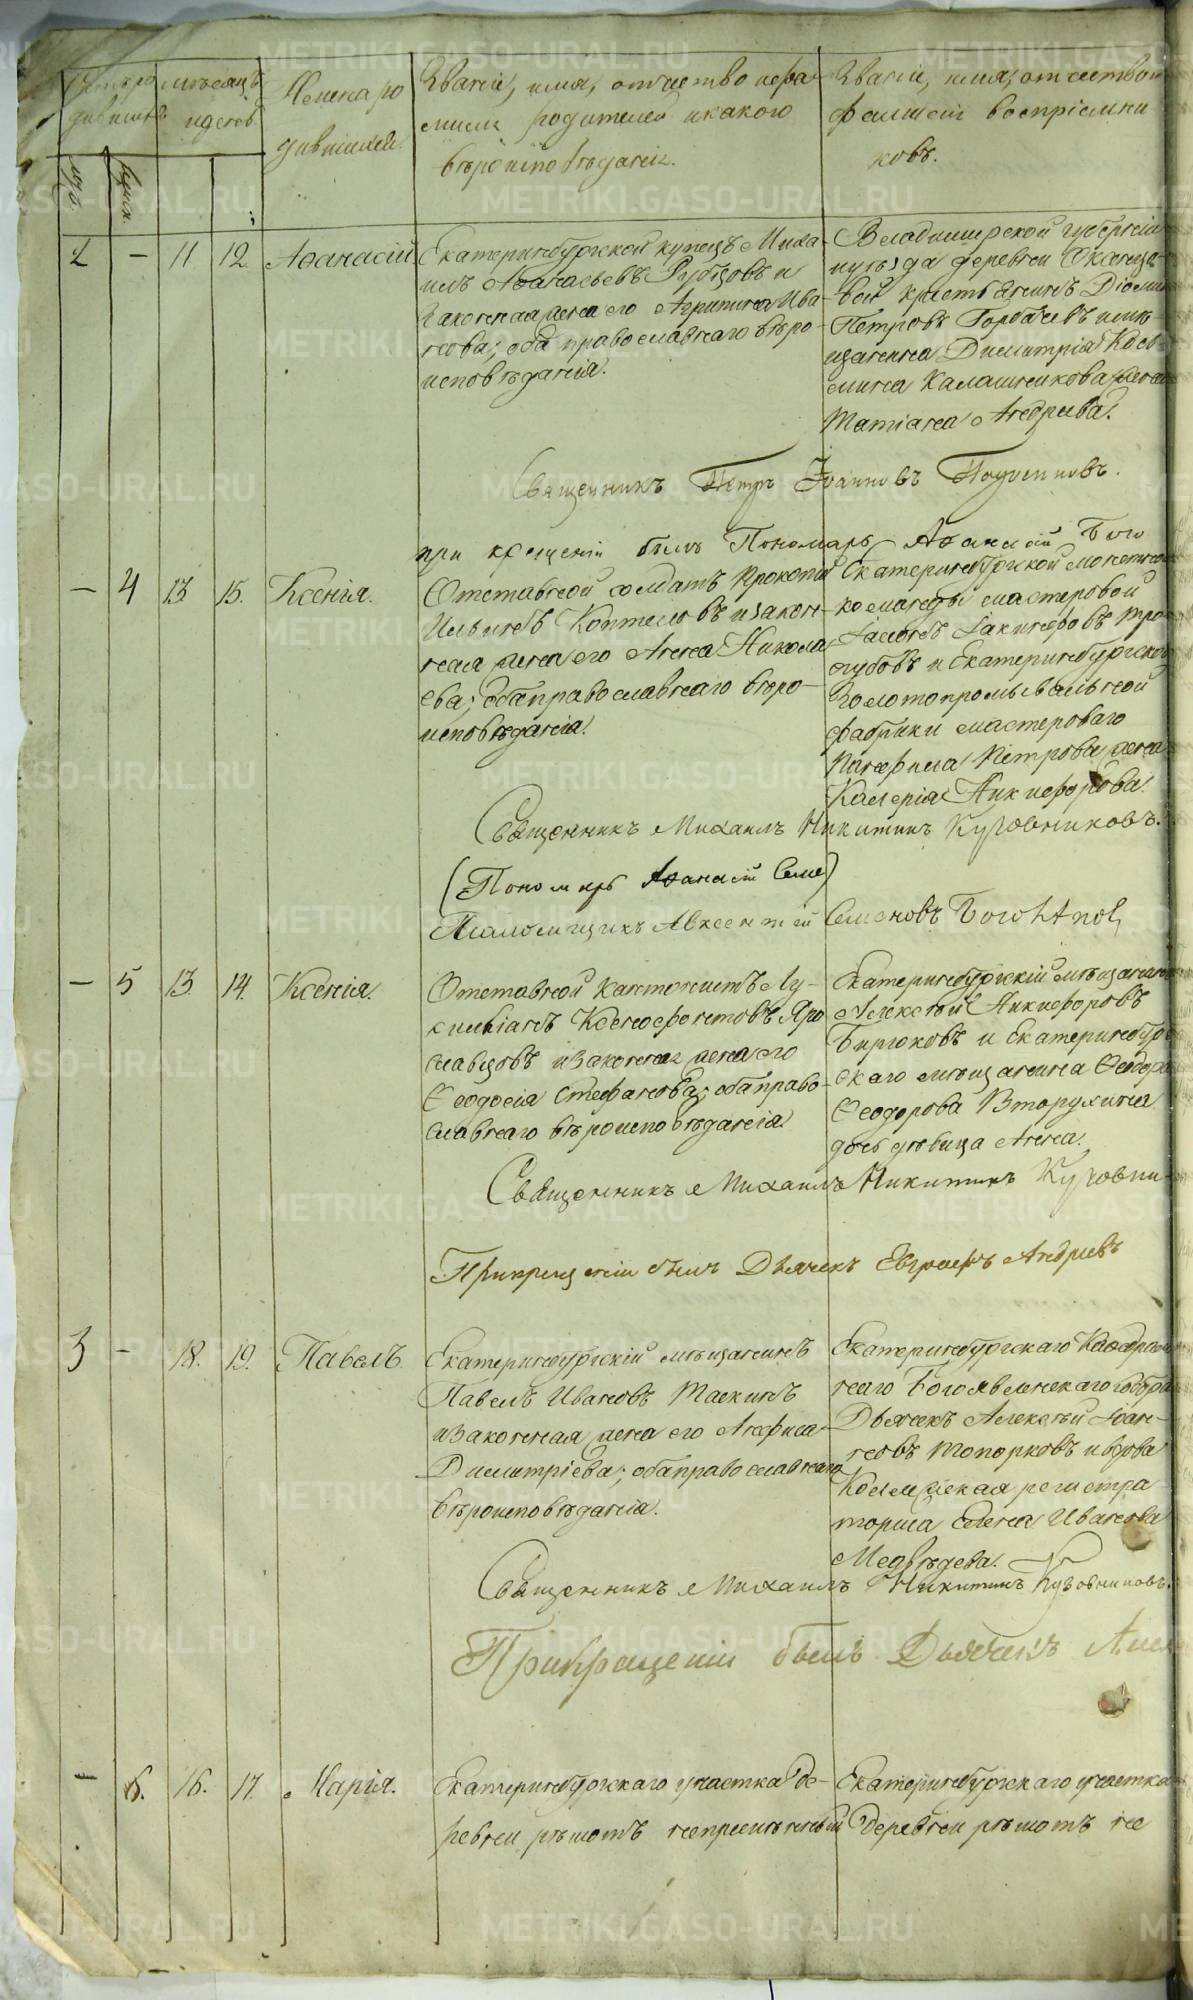 мѣсяцъ
Имена ро
дившихся.
Званіе, имя, отчество и фа-
милія родителей и какого
вѣроисповѣданія.
Званіе, имя, отчество и
фамилія воспріемни
ковъ.
муж.
женск.
2 — 11 12 Аѳанасій
Екатеринбургской купецъ Миха-
илъ Аѳанасьевъ Рубцовъ и
законная жена его Агрипина Ива-
нова; оба православнаго вѣро-
исповѣданія.
Владимирской губерніи
уѣзда деревни
крестьянинъ
Петровъ Горбачевъ и мѣ
щанина Димитрія Козь-
мина Калашникова жена
Татіана Андреева.
Священникъ Петръ Іоанновъ
при крещеніи былъ Пономарь Аѳанасій Бого
— 4 13 15. Ксенія.
Отставной солдатъ Прокопій
Ильинъ Коптеловъ и закон-
ная жена его Анна Никола
ева; оба православнаго вѣро-
исповѣданія.
Екатеринбургской монетной
команды мастеровой
Іакинфовъ Тро-
огубовъ и Екатеринбургской
Золотопромывальной
фабрики мастероваго
Панфила Петрова жена
Калерія Никифорова.
Священникъ Михаилъ Никитинъ Кузовниковъ.
(Пономарь Аѳанасій Семе)
Псаломщикъ Авксентій Семеновъ
— 5 13. 14. Ксенія.
Отставной кантонистъ Лу-
кильянъ Ксенофонтовъ Яро
славцовъ и законная жена его
Ѳеодосія Стефанова; оба право-
славнаго вѣроисповѣданія.
Екатеринбургскій мѣщанинъ
Алексѣй Никифоровъ
Бирюковъ и Екатеринбург
скаго мѣщанина Ѳедора
Ѳеодорова Вторухина
дочь дѣвица Анна.
Священникъ Михаилъ Никитинъ Кузовни-
При крещеніи былъ Дьячекъ Евграфъ Андреевъ
3 — 18. 19. Павелъ.
Екатеринбургскій мѣщанинъ
Павелъ Ивановъ Таскинъ
и законная жена его Анфиса
Димитріева; оба православнаго
вѣроисповѣданія.
Екатеринбургскаго Каѳедраль
наго Богоявленскаго собора
Дьячекъ Алексѣй Іоан-
новъ Топорковъ и вдова
Коллежская регистра-
торша Елена Иванова
Медвѣдева.
Священникъ Михаилъ Никитинъ Кузовниковъ.
При крещеніи былъ Дьячекъ Алек
— 6. 16. 17. Марія.
Екатеринбургскаго участка де-
ревни рѣшотъ непремѣнный
Екатеринбургскаго участка
деревни рѣшотъ не
METRIKI.GASO-URAL.RU